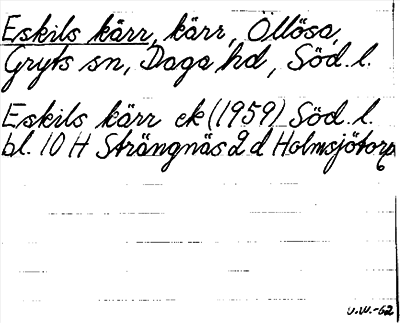 Eskils kärr, kärr, Öllösa,
Gryts sn, Daga hd, Söd. l.
Eskils kärr ek (1959) Söd. l.
bl. 10 H Strängnäs 2 d Holmsjötorp
U.W.-62